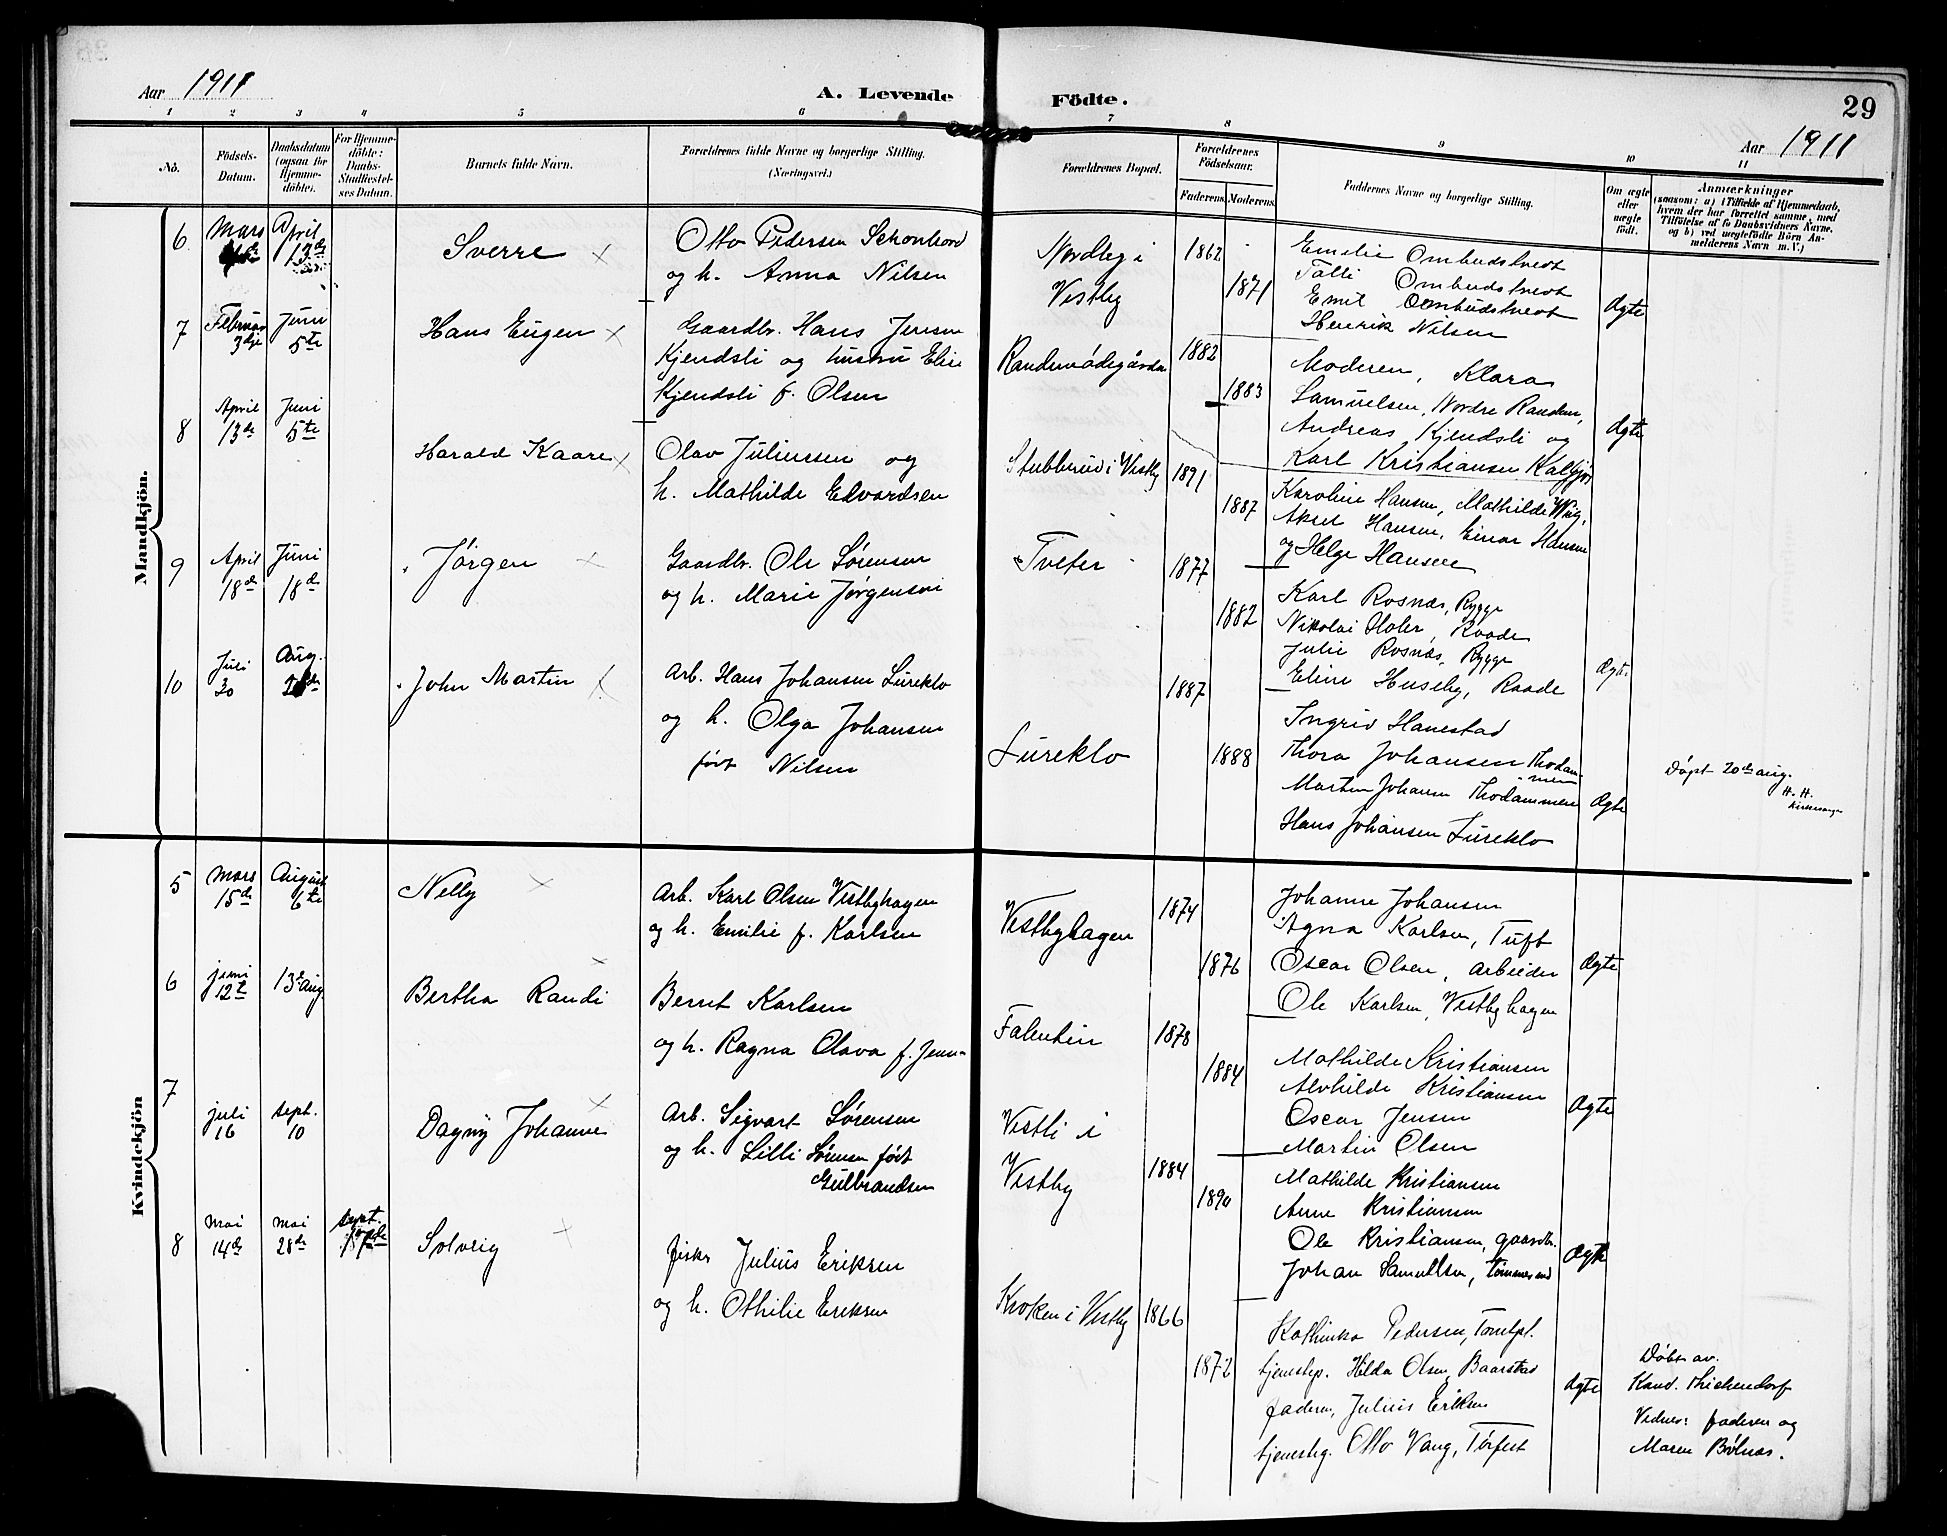 Aar 1911
A. Levende Födte.
29
Aar 1911
1 2 3 4 5 6 7 8 9 10 11
No.
Födsels-
Datum.
Daabsdatum
(ogsaa for
Hjemme-
döbte).
For Hjemme-
döbte:
Daabs-
Stadfæstel-
ses Datum.
Barnets fulde Navn.
Forældrenes fulde Navne og borgerlige Stilling.
(Næringsvei.)
Forældrenes Bopæl.
Forældrenes
Födselsaar.
Faderens Moderens
Faddernes Navne og borgerlige Stilling.
Om ægte
eller
uægte
födt.
Anmærkninger
(saasom: a) i Tilfælde af Hjemmedaab,
hvem der har forrettet samme, med
Tilföielse af to Daabsvidners Navne.
og b) ved uegtefödte Börn An-
melderens Navn m. V.)
Mandkjön.
6
Mars
April
13de
Sverre
Otto Pedersen Schonhord
og h. Anna Nilsen
Nordbeg i
Vestby
1862
1871
Emelie Ombudstvedt
Talli Ombudstvedt
Emil Ombudstvedt
Henrik Nilsen
Ægte
7
Februar
3dje
Juni
5te
Hans Eugen
Gaardbr. Hans Jensen
Kjendsli og hustru Elise
Kjendsli f. Olsen
1882
1883
Moderen, Klara
Samuelsen, Nordre Randem,
Andreas Kjendsli og
Karl Kristiansen
Ægte
8
April
13de
Juni
5te
Harald Kaare
Olav Juliussen og
h. Mathilde Edvardsen
Stubberud i Vestby
1891
1887
Karoline Hansen, Mathilde Wiig,
Aksel Hansen, Einar Hansen
og Helge Hansen
9
April
18de
Juni
18de
Jørgen
Gaardbr. Ole Sørensen
og h. Marie Jørgensen
Tveter
1877
1882
Karl Rosnæs, Rygge
Nikolai Holer, Raade
Julie Rosnæs, Rygge
Eline Huseby, Raade
Ægte
10
Juli
30
Aug.
John Martin
Arb. Hans Johansen Lureklo
og h. Olga Johansen
født Nilsen
Lureklo
1887
1888
Ingrid Hanestad
Thora Johansen Thodam-
men
Martin Johansen Thodammen
Hans Johansen Lureklo
Ægte
Døpt 20de aug.
H. H.
Kvindekjön
5
Mars
15de
August
6te
Nelly
Arb. Karl Olsen Vestbyhagen
og h. Emilie f. Karlsen
Vestbyhagen
1874
1876
Johanne Johansen
Agna Karlsen, Tuft
Oscar Olsen, arbeider
Ole Karlsen, Vestbyhagen
Ægte
6
juni
12te
13de aug.
Bertha Randi
Bernt Karlsen
og h. Ragna Olava f. Jens-
Falentin
1878
1884
Mathilde Kristiansen
Alvhilde Kristiansen
Oscar Jensen
Martin Olsen
Ægte
7
juli
16
sept.
10
Dagny Johanne
Arb. Sigvart Sørensen
og h. Lilli Sørensen født
Gulbrandsen
Vestli i
Vestby
1884
1890
Mathilde Kristiansen
Anne Kristiansen
Ole Kristiansen, gaardbr.
Johan Samuelsen, tømmermd
Ægte
8
mai
14de
mai
28de
sept.
17de
Solveig
fisker Julius Eriksen
og h. Othilie Eriksen
Kroken i Vestby
1866
1872
Kathinka Pedersen,
tjenestep. Hilda Olsen, Baarstad
faderen, Julius Eriksen
tjenesteg. Otto Vang,
Ægte
Døbt av.
Kand. Thickendorf
Vidner: faderen og
Maren Bølnæs.